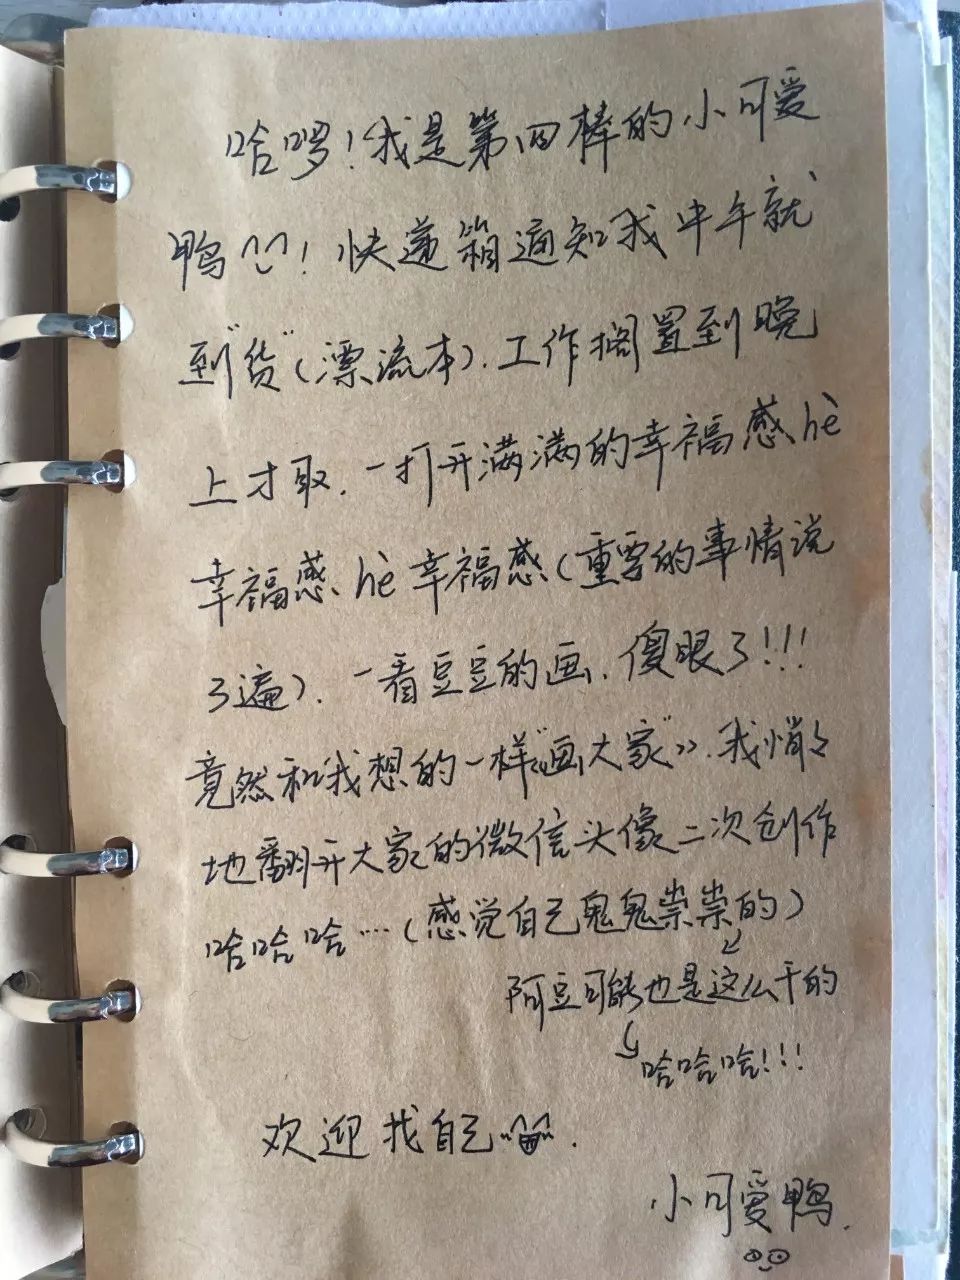 哈啰！我是第四棒的小可爱
鸭^_^！快递箱通知我中午就
到"货"（漂流本）.工作搁置到晚
上才取.一打开满满的幸福感hè
幸福感、hè幸福感（重要的事情说
3遍）.一看豆豆的画.傻眼了!!!
竟然和我想的一样《"画大家"》.我悄々
地翻开大家的微信头像二次创作
哈哈哈…（感觉自己鬼鬼祟祟的）
阿豆可能也是这么干的
哈哈哈!!!
欢迎找自己^^.
小可爱鸭.